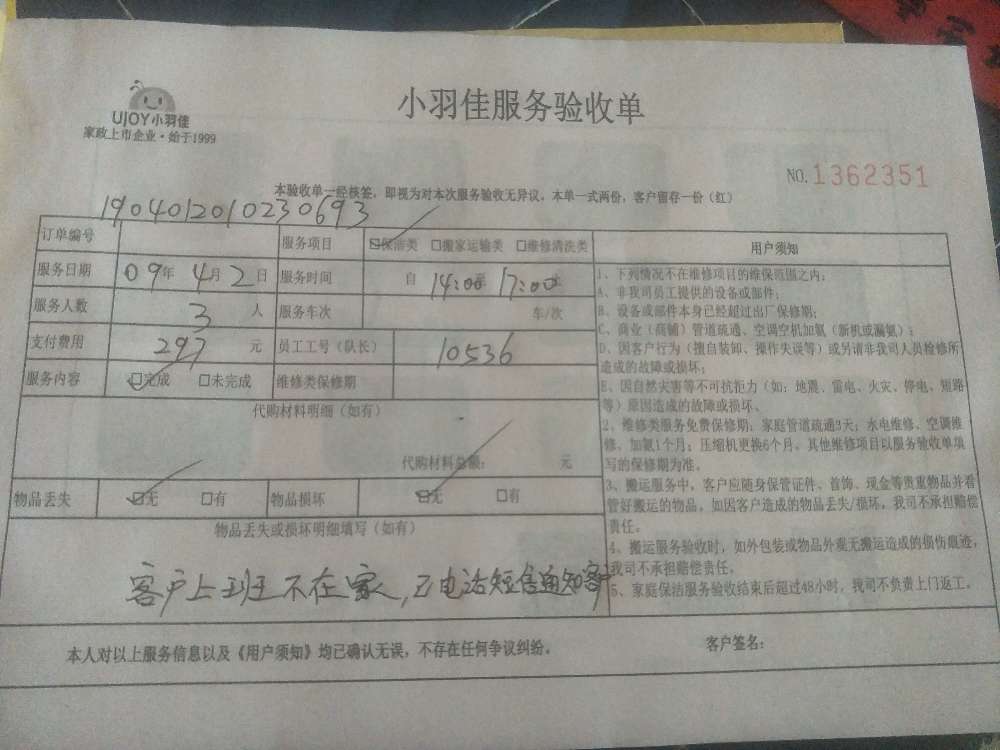 UJOY小羽佳
家政上市企业·始于1999
小羽佳服务验收单
NO.1362351
本验收单一经核签，即视为对本次服务验收无异议，本单一式两份，客户留存一份（红）
订单编号 190401201023​0693 服务项目 ☑保洁类 □搬家运输类 □维修清洗类
服务日期 09年4月2日 服务时间 自 14:00 至 17:00
服务人数 3 人 服务车次 车/次
支付费用 297 元 员工工号（队长） 10536
服务内容 ☑完成 □未完成 维修类保修期
代购材料明细（如有）
代购材料总额： 元
物品丢失 ☑无 □有 物品损坏 ☑无 □有
物品丢失或损坏明细填写（如有）
客户上班不在家，已电话短信通知客户
用户须知
1、下列情况不在维修项目的维保范围之内：
A、非我司员工提供的设备或部件；
B、设备或部件本身已经超过出厂保修期；
C、商业（商铺）管道疏通、空调空机加氨（新机或漏氨）；
D、因客户行为（擅自装卸、操作失误等）或另请非我司人员检修所
造成的故障或损坏；
E、因自然灾害等不可抗拒力（如：地震、雷电、火灾、停电、短路
等）原因造成的故障或损坏。
2、维修类服务免费保修期：家庭管道疏通3天；水电维修、空调维
修、加氨1个月；压缩机更换6个月。其他维修项目以服务验收单填
写的保修期为准。
3、搬运服务中，客户应随身保管证件、首饰、现金等贵重物品并看
管好搬运的物品，如因客户造成的物品丢失/损坏，我司不承担赔偿
责任。
4、搬运服务验收时，如外包装或物品外观无搬运造成的损伤痕迹，
我司不承担赔偿责任。
5、家庭保洁服务验收结束后超过48小时，我司不负责上门返工。
本人对以上服务信息以及《用户须知》均已确认无误，不存在任何争议纠纷。 客户签名：